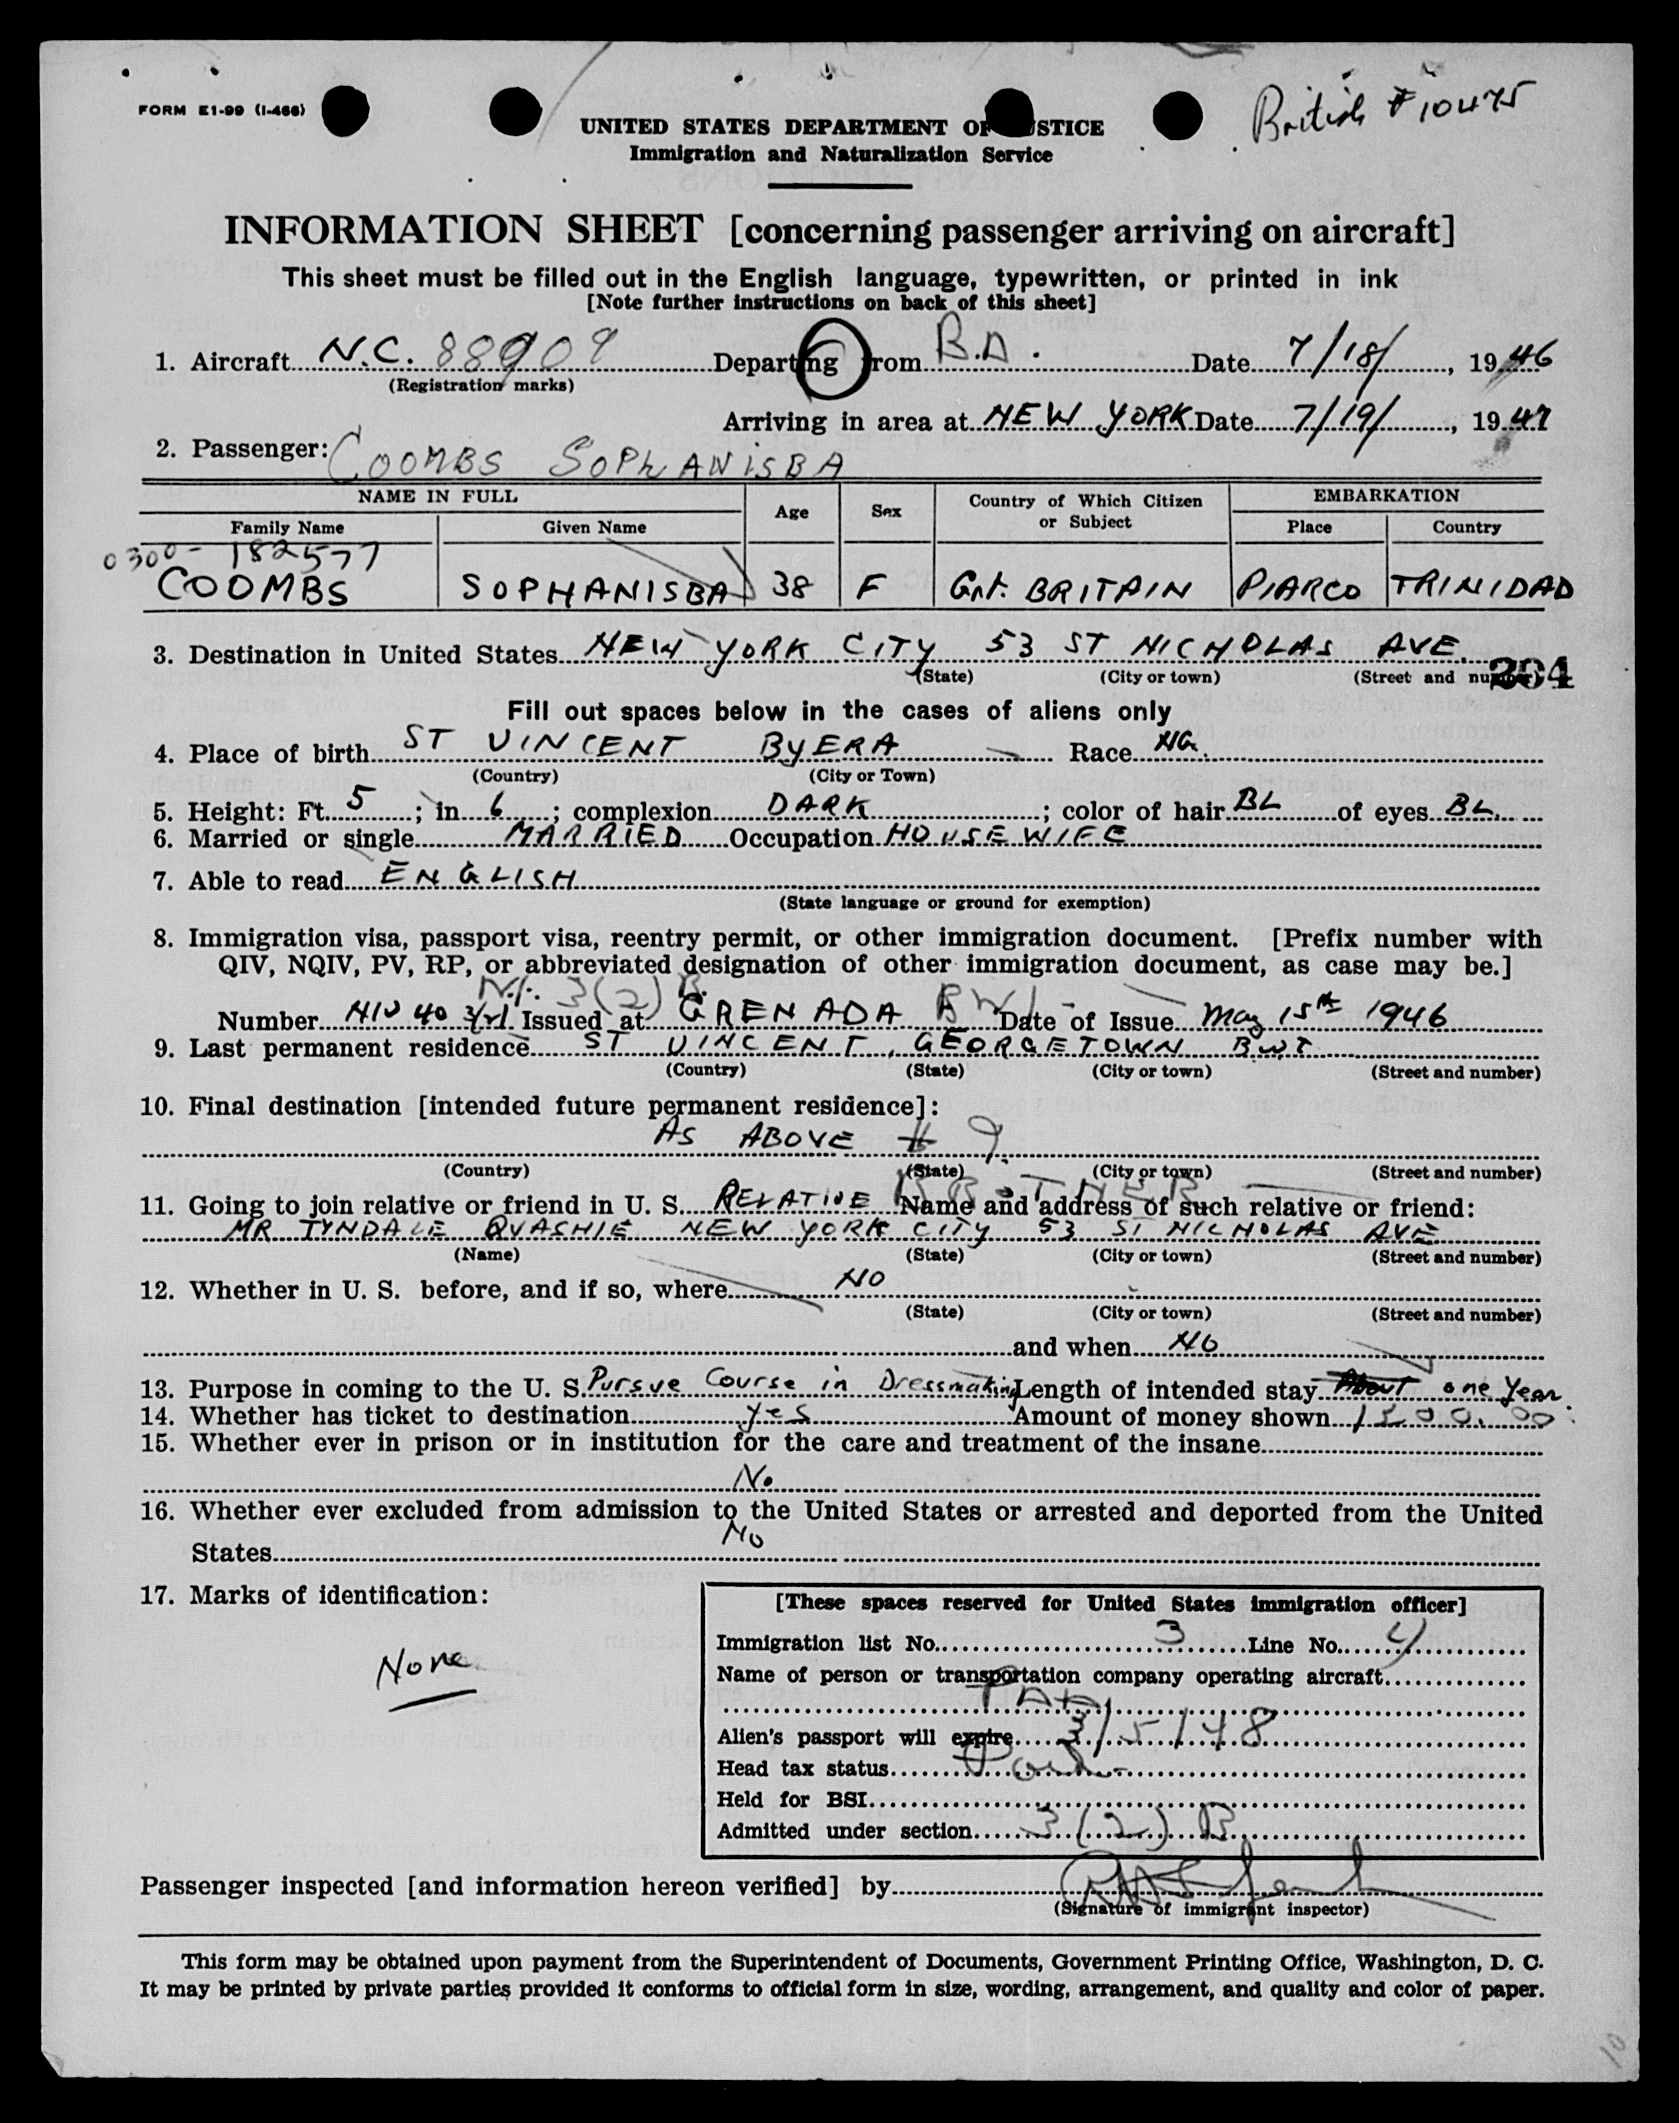 British # 10475
FORM E1-99 (I-466)
UNITED STATES DEPARTMENT OF JUSTICE
Immigration and Naturalization Service
INFORMATION SHEET [concerning passenger arriving on aircraft]
This sheet must be filled out in the English language, typewritten, or printed in ink
[Note further instructions on back of this sheet]
1. Aircraft N.C. 88909 Departing from B.D. Date 7/18/, 1946
(Registration marks)
Arriving in area at NEW YORK Date 7/19/, 1947
2. Passenger: COOMBS SOPhANISBA
NAME IN FULL Age Sex Country of Which Citizen or Subject EMBARKATION
Family Name Given Name Place Country
0300-182577
COOMBS SOPHANISBA 38 F Grt. BRITAIN PIARCO TRINIDAD
3. Destination in United States NEW YORK CITY 53 ST NICHOLAS AVE.
(State) (City or town) (Street and number) 204
Fill out spaces below in the cases of aliens only
4. Place of birth ST VINCENT BYERA Race NG.
(Country) (City or Town)
5. Height: Ft. 5; in 6; complexion DARK; color of hair BL of eyes BL
6. Married or single MARRIED Occupation HOUSEWIFE
7. Able to read ENGLISH
(State language or ground for exemption)
8. Immigration visa, passport visa, reentry permit, or other immigration document. [Prefix number with
QIV, NQIV, PV, RP, or abbreviated designation of other immigration document, as case may be.]
3(2) B.
Number NIV 40 Issued at GRENADA BWI Date of Issue May 15th 1946
9. Last permanent residence ST VINCENT, GEORGETOWN BWI
(Country) (State) (City or town) (Street and number)
10. Final destination [intended future permanent residence]:
AS ABOVE # 9.
(Country) (State) (City or town) (Street and number)
BROTHER
11. Going to join relative or friend in U. S. RELATIVE Name and address of such relative or friend:
MR TYNDALE QUASHIE NEW YORK CITY 53 ST NICHOLAS AVE
(Name) (State) (City or town) (Street and number)
12. Whether in U. S. before, and if so, where NO
(State) (City or town) (Street and number)
and when NO
13. Purpose in coming to the U. S. Pursue Course in Dressmaking Length of intended stay About one Year.
14. Whether has ticket to destination yes Amount of money shown 1500.00
15. Whether ever in prison or in institution for the care and treatment of the insane
No
16. Whether ever excluded from admission to the United States or arrested and deported from the United
States No
17. Marks of identification:
None
[These spaces reserved for United States immigration officer]
Immigration list No. 3 Line No. 4
Name of person or transportation company operating aircraft
PAA
Alien's passport will expire 3/5/48
Head tax status Paid
Held for BSI
Admitted under section 3(2) B
Passenger inspected [and information hereon verified] by
(Signature of immigrant inspector)
This form may be obtained upon payment from the Superintendent of Documents, Government Printing Office, Washington, D. C.
It may be printed by private parties provided it conforms to official form in size, wording, arrangement, and quality and color of paper.
10